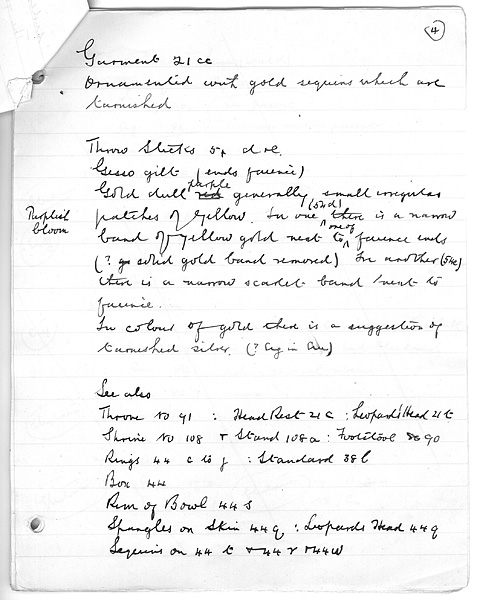 4
Garment 21cc
Ornamented with gold sequins which are
tarnished
Throw Sticks 5, d & e.
Gesso gilt (ends faience)
Gold dull red purple generally small irregular
Purplish
bloom
patches of yellow. In one (5d) there is a narrow
band of yellow gold next to one of faience ends
(? solid gold band removed) In another (5e)
there is a narrow scarlet band next to
faience.
In colour of gold there is a suggestion of
tarnished silver. (? Ag in Au)
See also
Throne No 91 : Head Rest 21c : Leopard's Head 21t
Shrine No 108 & Stand 108a : Footstool 90
Rings 44 c to j : Standard 38b
Box 44
Rim of Bowl 44s
Spangles on Skin 44q : Leopards Head 44q
Sequins on 44 t & 44 v & 44w